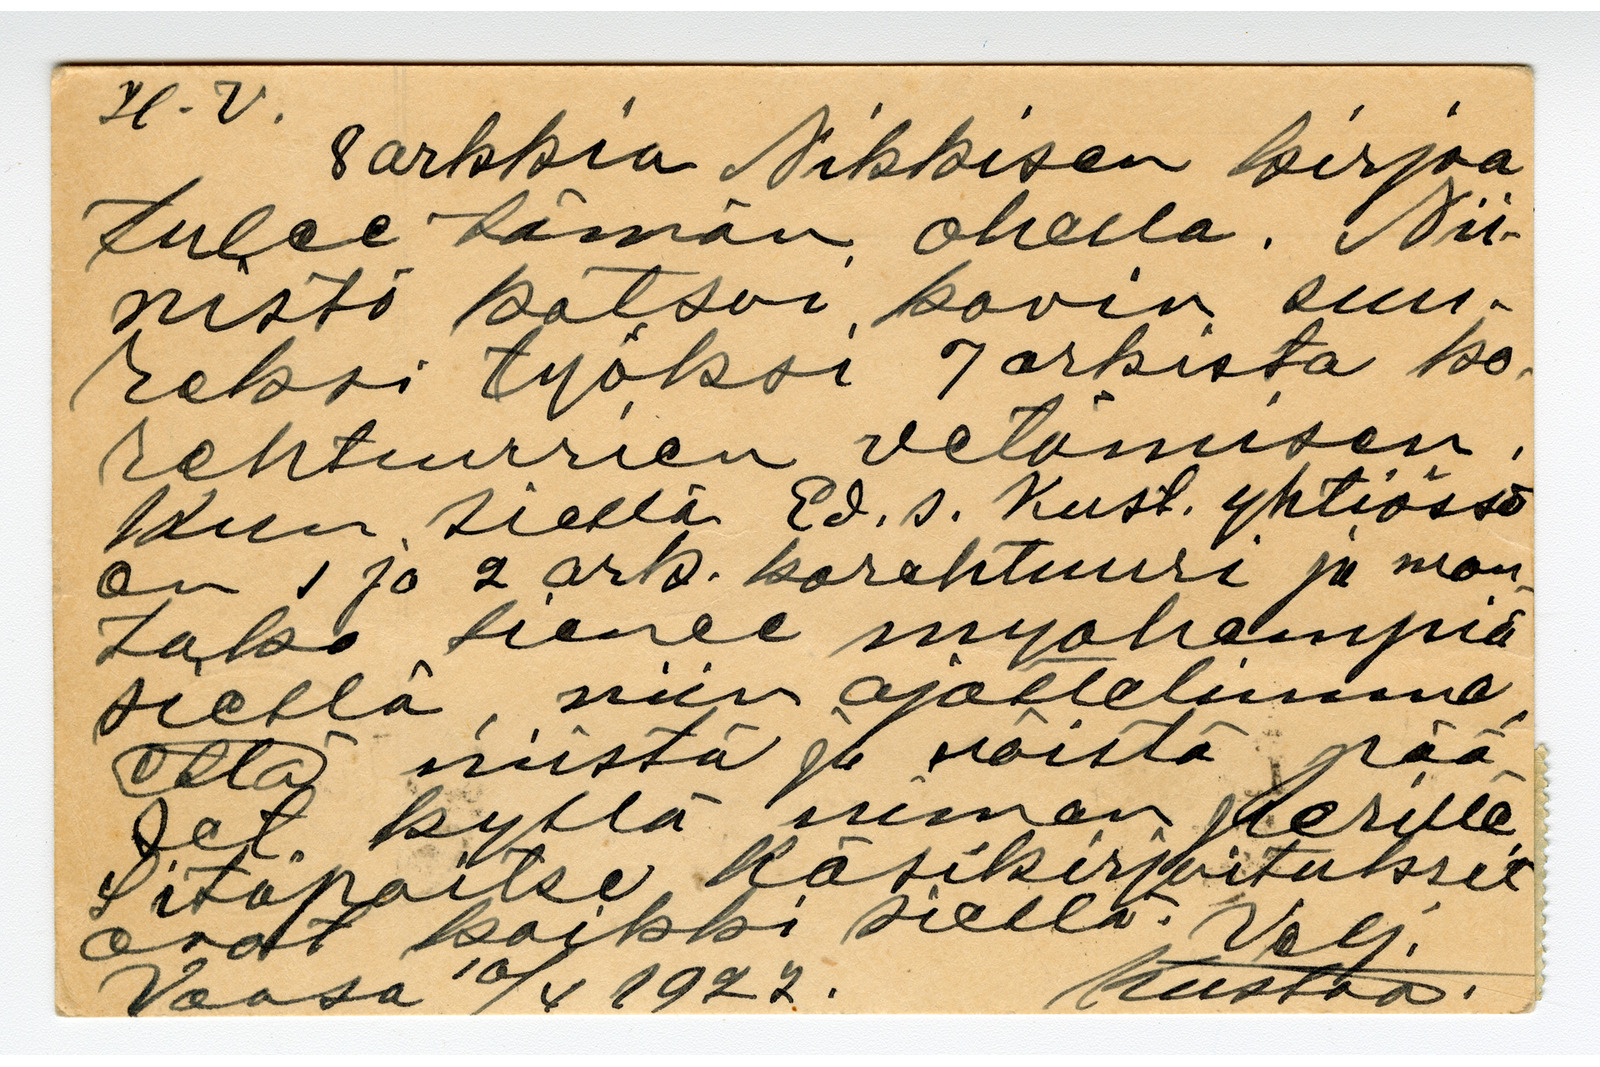 H. V.
8 arkkia Nikkisen kirjaa
tulee tämän ohella. Nii-
nistö katsoi kovin suu-
reksi työksi 7 arkista ko-
rehtuurrien vetämisen.
Kun siellä Ed. s. Kust. yhtiössä
on 1 ja 2 ark. korehtuuri ja mon-
tako lienee myöhempiä
siellä, niin ajattelimme,
että niistä ja näistä pää
set kyllä niman perille.
Sitäpaitse käsikirjoitukset
ovat kaikki siellä. Velj.
Vaasa 10/X 1922. Kustaa.